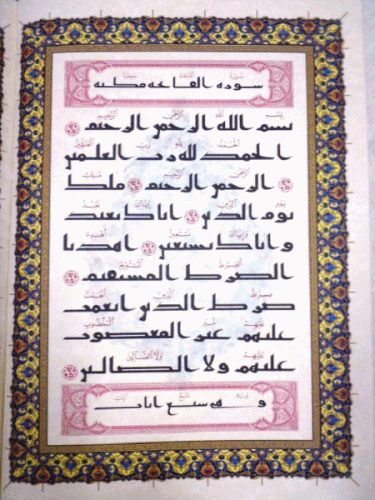 سوره الفاتحه مكيه
بسم الله الرحمن الرحيم
الحمد لله رب العلمين
الرحمن الرحيم ملك
يوم الدين اياك نعبد
و اياك نستعين اهدنا
الصرط المستقيم
صرط الذين انعمت
عليهم غير المغضوب
عليهم ولا الضالين
و هي سبع ايات